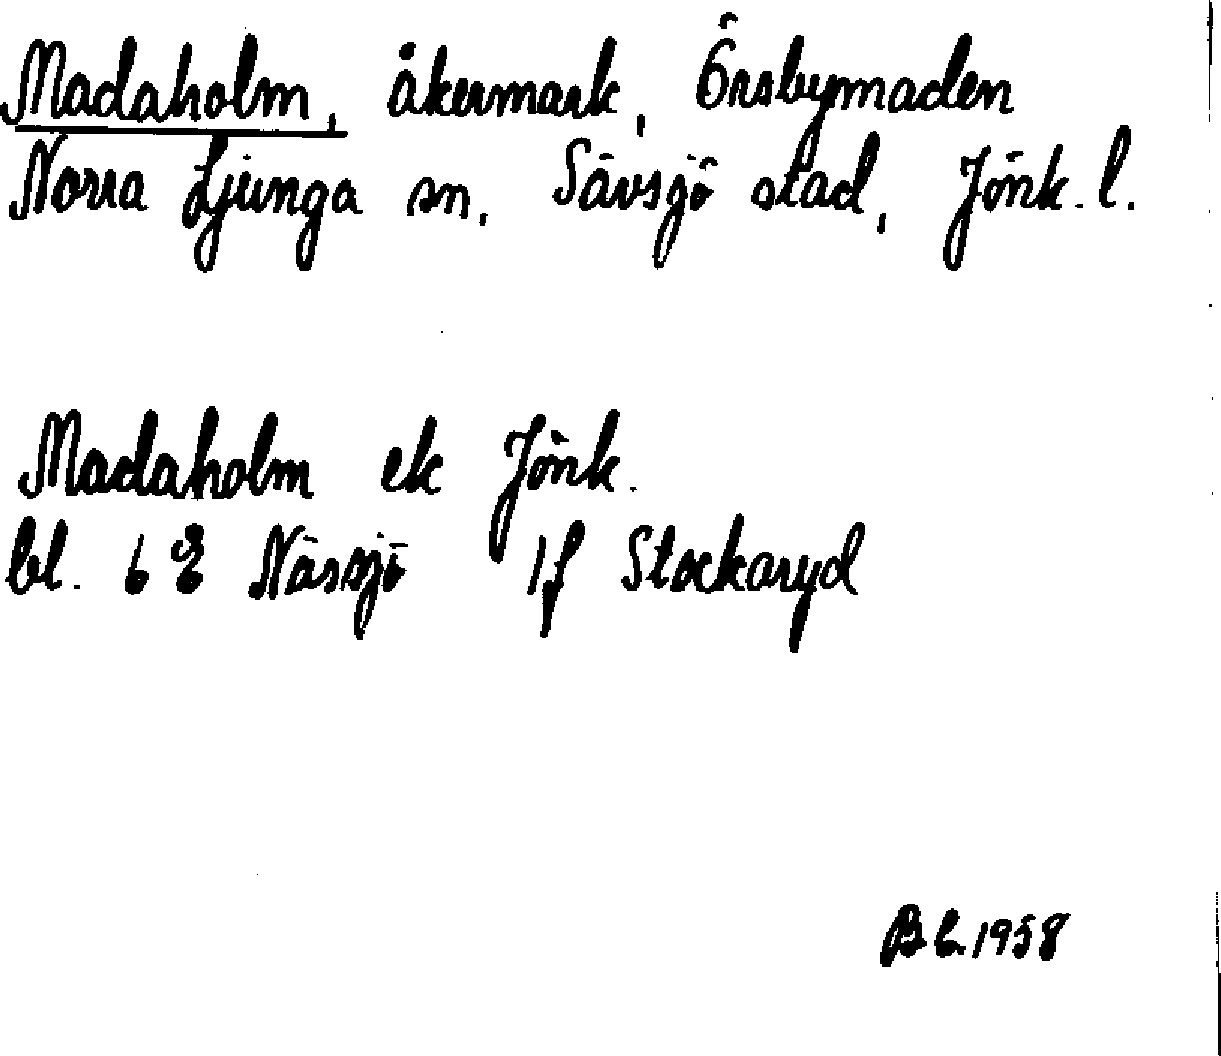 Madaholm, åkermark, Örsbymaden
Norra Ljunga sn, Sävsjö stad, Jönk. l.
Madaholm ek Jönk.
bl. 6 E Nässjö 1f Stockaryd
1958